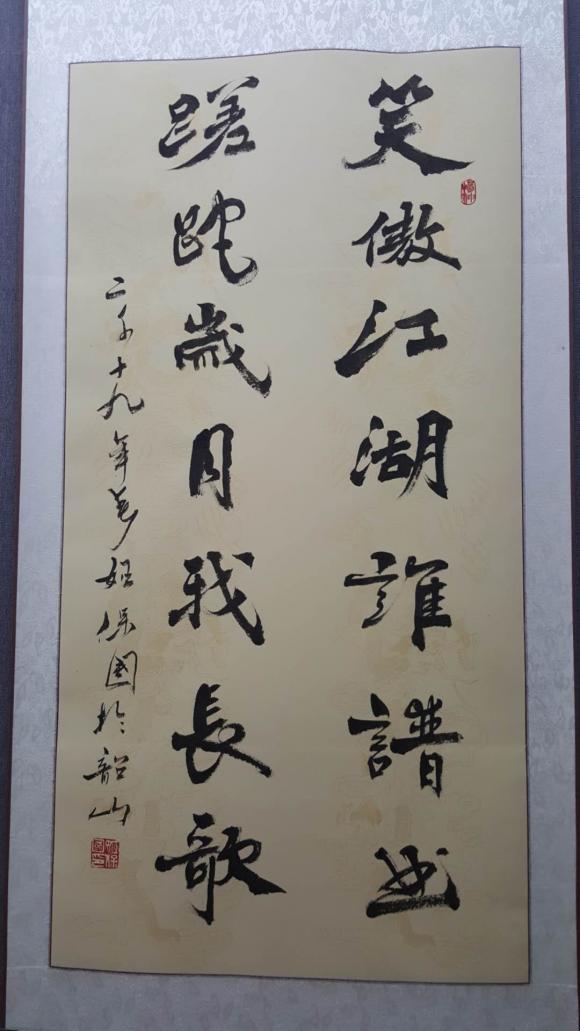 笑傲江湖誰譜曲
蹉跎歲月我長歌
二千十九年保國於韶山